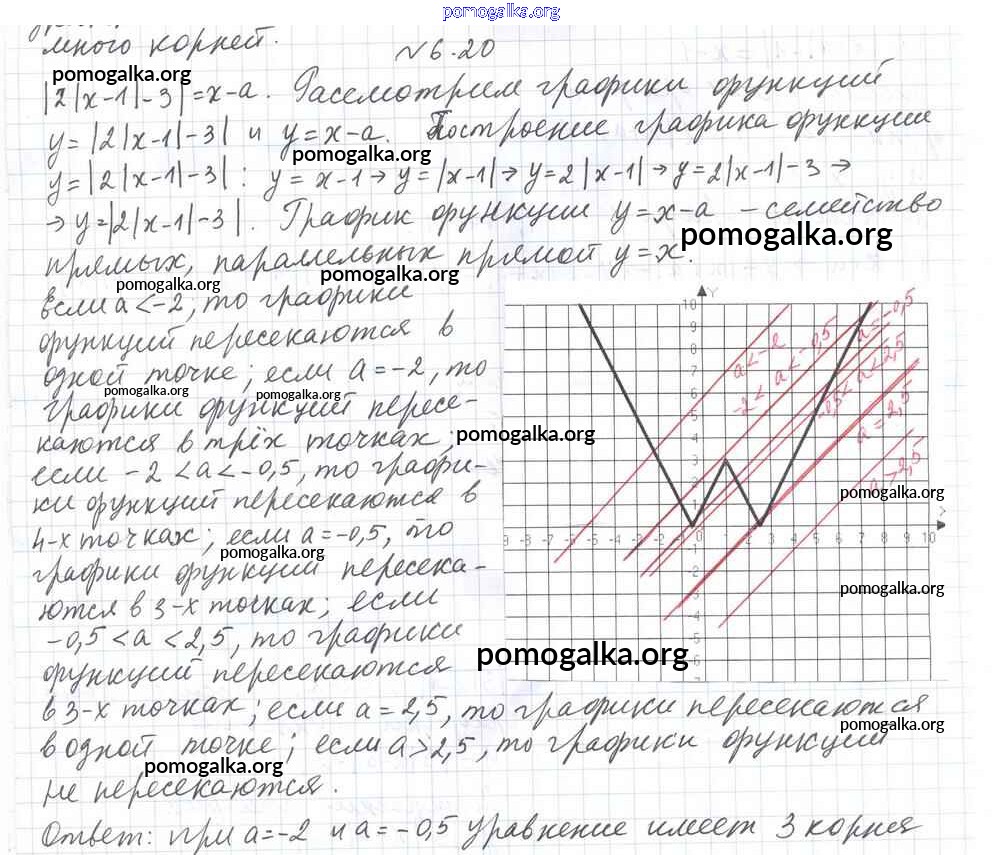 pomogalka.org
много корней.
№6.20
pomogalka.org
|2|x-1|-3|=x-a. Рассмотрим графики функций
y=|2|x-1|-3| и y=x-a. Построение графика функции
pomogalka.org
y=|2|x-1|-3|: y=x-1→y=|x-1|→y=2|x-1|→y=2|x-1|-3→
→y=|2|x-1|-3|. График функции y=x-a - семейство
pomogalka.org
прямых, параллельных прямой y=x.
pomogalka.org
pomogalka.org
если a<-2, то графики
функций пересекаются в
одной точке; если a=-2, то
pomogalka.org
pomogalka.org
графики функций пересе-
каются в трёх точках;
pomogalka.org
если -2<a<-0,5, то графи-
ки функций пересекаются в
4-х точках; если a=-0,5, то
pomogalka.org
графики функций пересека-
ются в 3-х точках; если
-0,5<a<2,5, то графики
функций пересекаются
в 3-х точках; если a=2,5, то графики пересекаются
в одной точке; если a>2,5, то графики функций
pomogalka.org
не пересекаются.
Ответ: при a=-2 и a=-0,5 уравнение имеет 3 корня
Y
10
9
8
7
6
5
4
3
a<-2
-2<a<-0,5
a=-0,5
-0,5<a<2,5
a=2,5
a>2,5
pomogalka.org
pomogalka.org
pomogalka.org
pomogalka.org